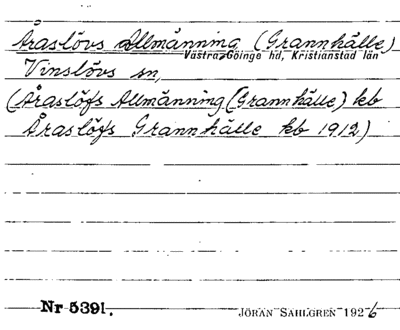 Åraslövs Allmänning (Grannhälle)
Västra Göinge hd, Kristianstad län
Vinslövs sn,
(Åraslöfs Allmänning (Grannhälle) kb
Åraslöfs Grannhälle kb 1912)
Nr 5391. JÖRAN SAHLGREN 1926